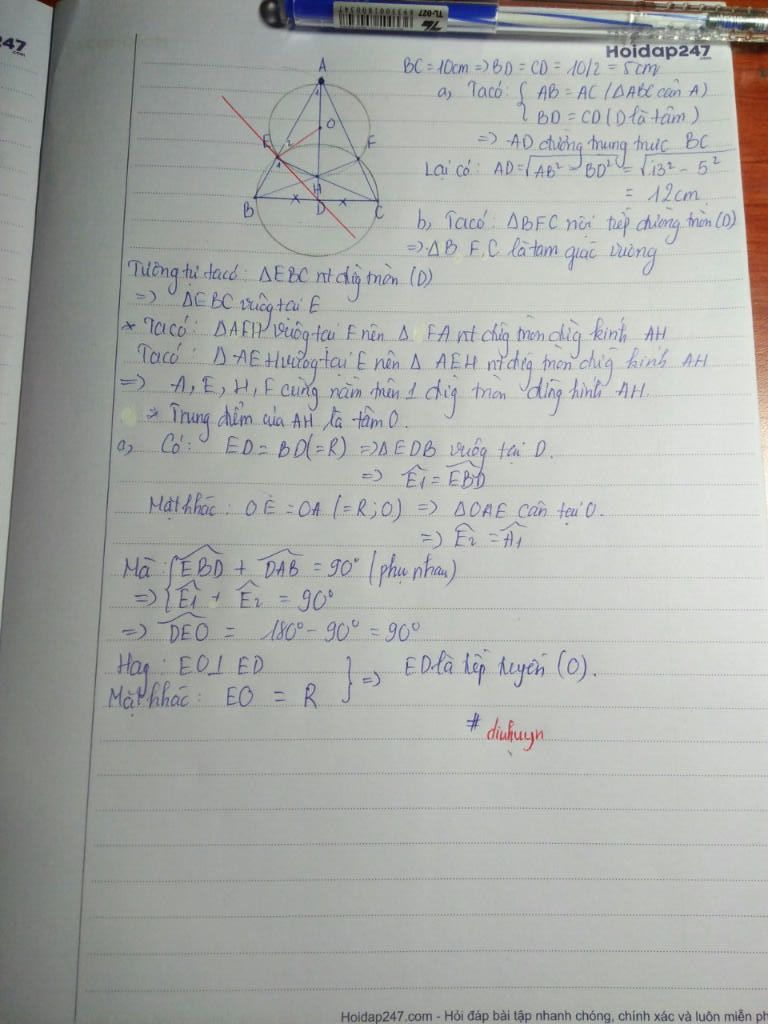 247
.com
TL-027
Hoidap247
.com
BC = 10cm => BD = CD = 10/2 = 5cm
a, Ta có: { AB = AC (ΔABC cân A)
BD = CD (D là tâm)
=> AD đường trung trực BC
Lại có: AD = √AB² - BD² = √13² - 5²
= 12cm
b, Ta có: ΔBFC nội tiếp đường tròn (D)
=> ΔB F C là tam giác vuông
A
1
O
E 2
1
F
H
B x D x C
Tương tự ta có: ΔEBC nt đg tròn (D)
=> ΔEBC vuôg tại E
* Ta có: ΔAEH vuôg tại E nên Δ FA nt đg tròn đg kính AH
Ta có: Δ AEH vuôg tại E nên Δ AEH nt đg tròn đg kính AH
=> A, E, H, F cùng nằm trên 1 đg tròn đg kính AH.
=> Trung điểm của AH là tâm O.
a, Có: ED = BD (=R) => ΔEDB vuôg tại D.
=> Ê1 = EBD
Mặt khác: OE = OA (=R;O) => ΔOAE cân tại O.
=> Ê2 = Â1
Mà { EBD + DAB = 90° (phụ nhau)
=> { Ê1 + Ê2 = 90°
=> DEO = 180° - 90° = 90°
Hay: EO ⊥ ED } => ED là tiếp tuyến (O).
Mặt khác: EO = R
# diuhuyn
Hoidap247.com - Hỏi đáp bài tập nhanh chóng, chính xác và luôn miễn ph